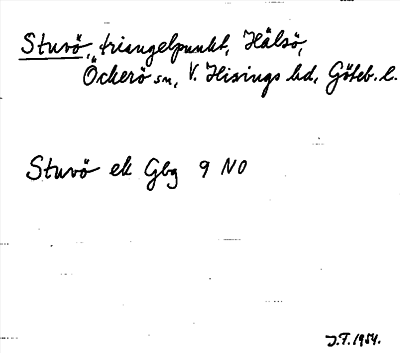 Stuvö, triangelpunkt, Hälsö,
Öckerö sn, V. Hisings hd, Göteb. l.
Stuvö ek Gbg 9 NO
J.T. 1954.